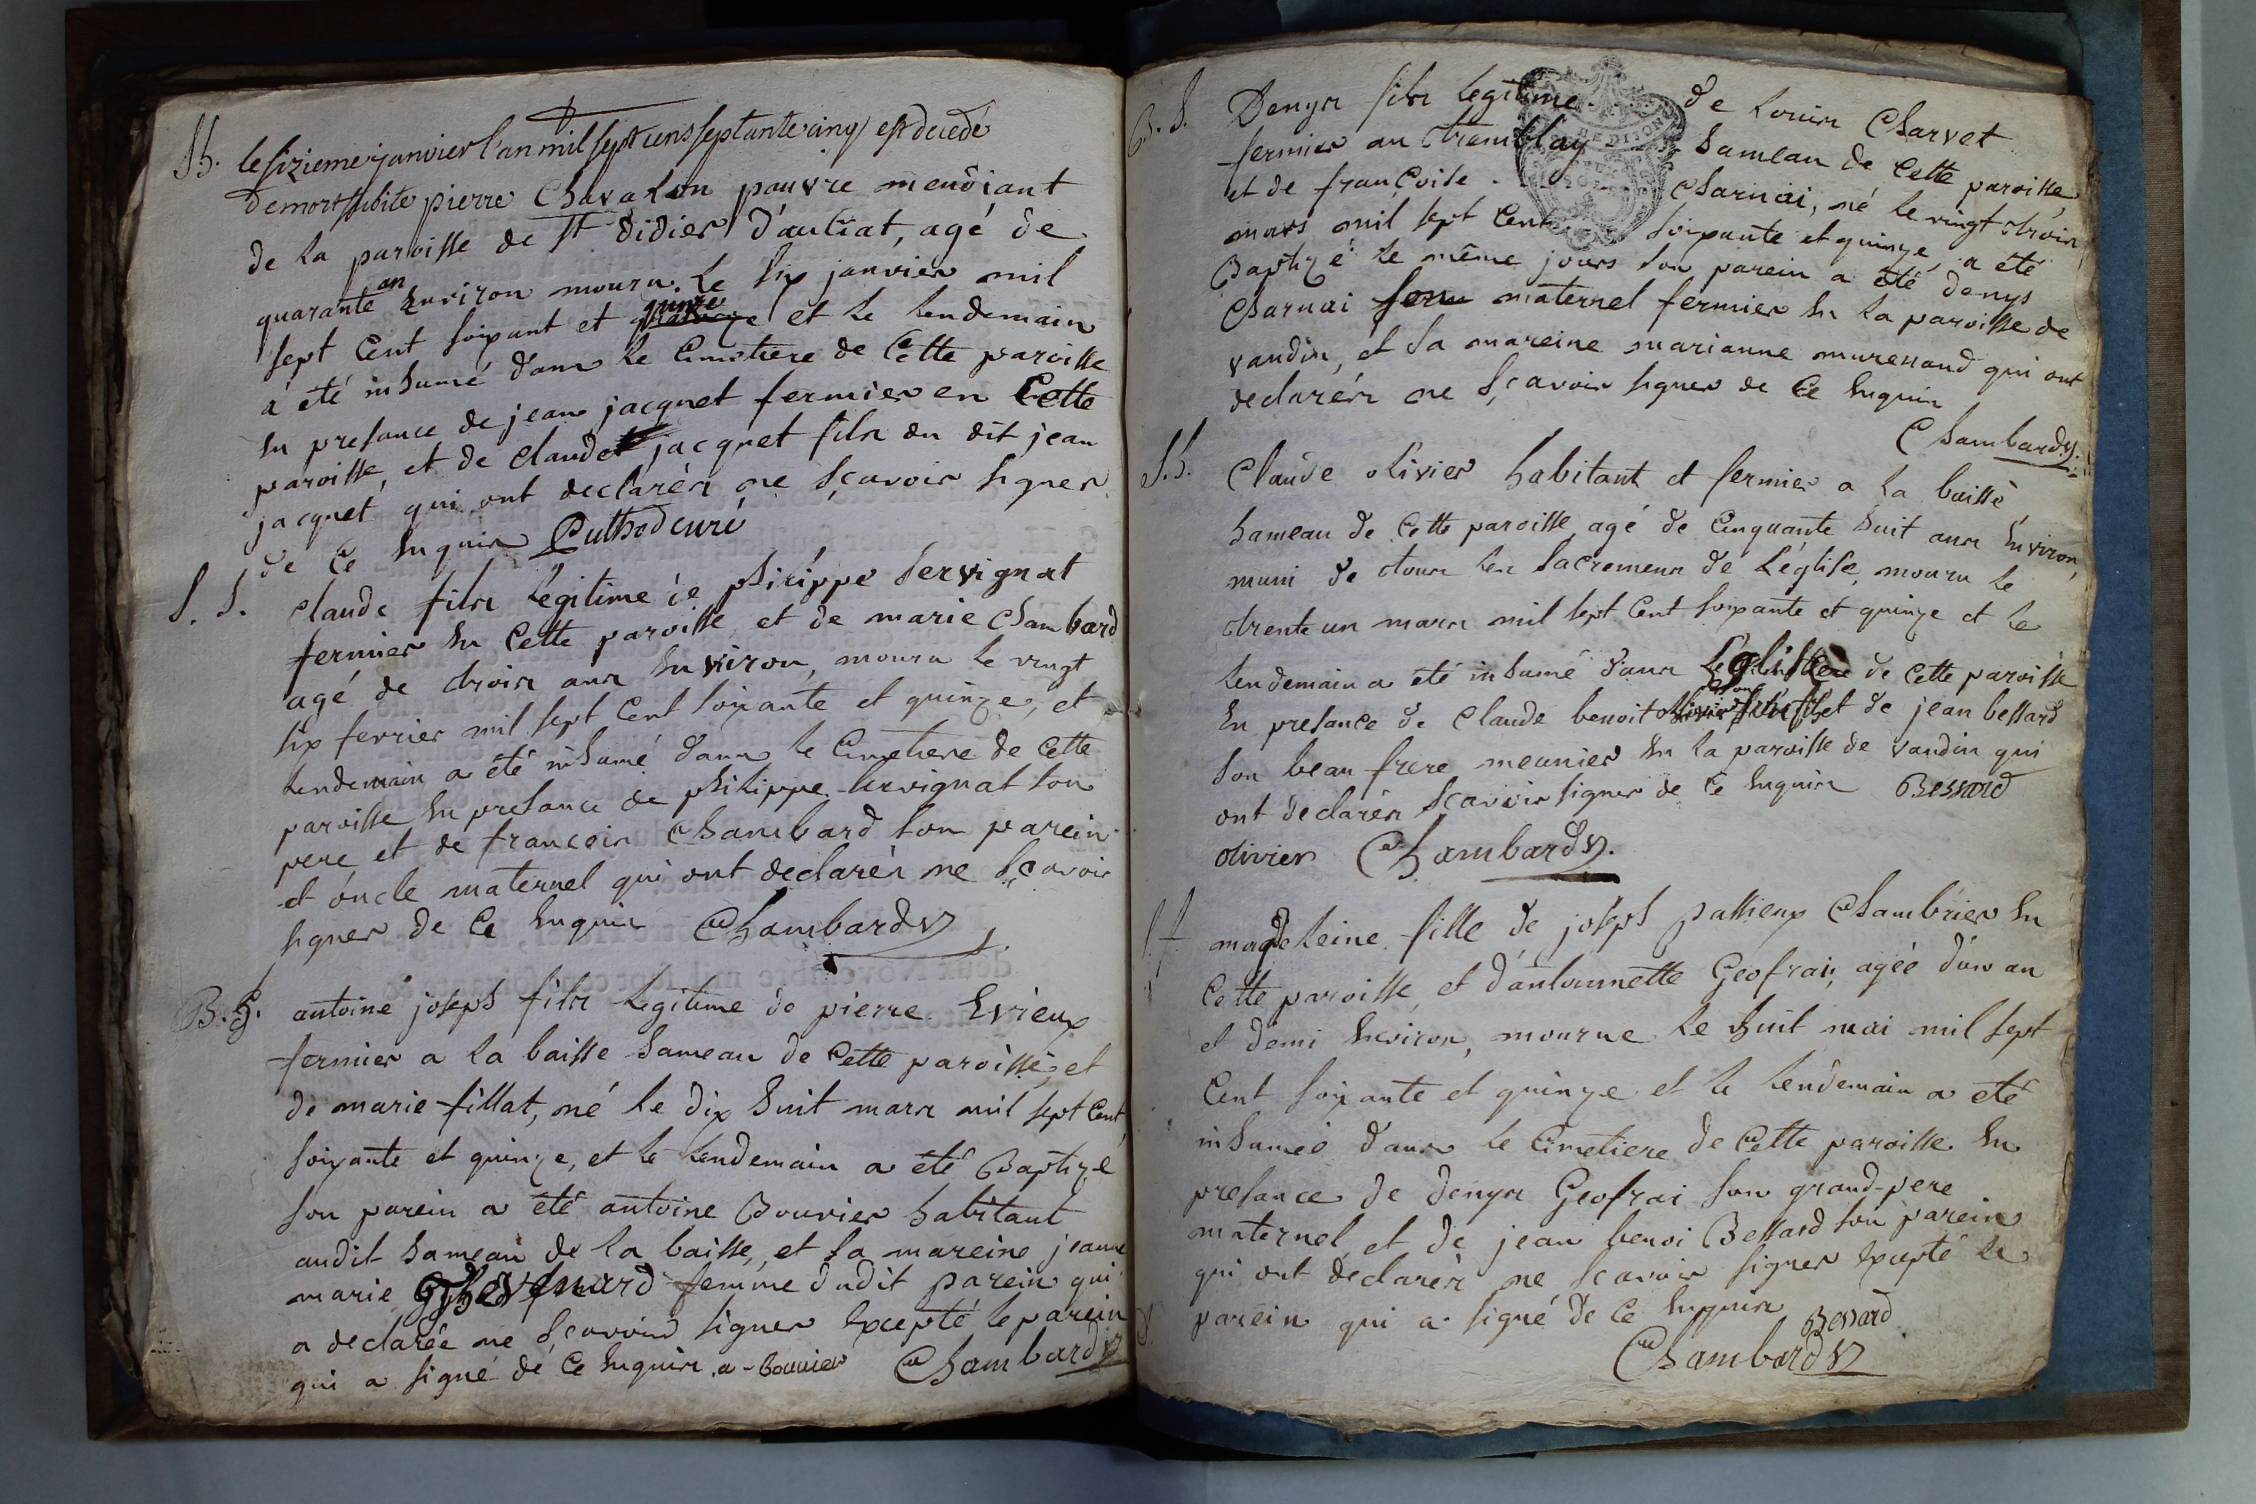 S.h. le sizieme janvier l'an mil sept cens septante cinq est decedé
de mort subite pierre Chavalon pauvre mendiant
de la paroisse de St didier d'autiat, agé de
quarante an Environ mouru le six janvier mil
sept Cent soixant et quinze et le lendemain
a été inhumé dans le Cimetiere de Cette paroisse
En presance de jean jacquet fermier en Cette
paroisse, et de claude jacquet fils du dit jean
jacquet qui ont declarés ne sçavoir signer
de Ce Enquis Puthod curé
S. S. claude fils legitime de philippe servignat
fermier En Cette paroisse et de marie Chambard
agé de trois ans Environ, mouru le vingt
six fevrier mil sept Cent soixante et quinze, et
lendemain a été inhumé dans le Cimetiere de Cette
paroisse En presance de philippe servignat son
pere, et de francois Chambard son parein
et oncle maternel qui ont declarés ne sçavoir
signer de Ce Enquis Chambard v
B. G. antoine joseph fils legitime de pierre Evrieux
fermier a la baisse hameau de Cette paroisse, et
de marie fillat, né le dix huit mars mil sept Cent
soixante et quinze, et le lendemain a été Baptizé
son parein a été antoine Bouvier habitant
audit hameau de la baisse, et sa mareine jeanne
marie Thevenard femme dudit parein qui
a declarée ne sçavoir signer Excepté le parein
qui a signé de Ce Enquis a-Bouvier Chambard v
B. S. Denys fils legitime de Louis Charvet
fermier au tremblay hameau de Cette paroisse
et de françoise Charnai, né le vingt trois
mars mil sept Cent soixante et quinze, a été
Baptizé le même jours son parein a été denys
Charnai maternel fermier En la paroisse de
vandin, et sa mareine marianne murenand qui ont
declarés ne sçavoir signer de Ce Enquis
Chambard v.
S.h. Claude olivier habitant et fermier a la baisse
hameau de Cette paroisse agé de Cinquante huit ans Environ,
muni de tous les sacremens de L'église, mouru le
trente un mars mil sept Cent soixante et quinze et le
lendemain a été inhumé dans L'eglise de Cette paroisse
En presance de Claude benoit olivier son fils et de jean bessard
son beau frere meunier En la paroisse de vandin qui
ont declarés sçavoir signer de Ce Enquis Bessard
olivier Chambard v.
S.f. magdeleine fille de joseph passieux Chambrier En
Cette paroisse, et d'antoinnette Geofrai, agée d'un an
et demi Environ, mourue le huit mai mil sept
Cent soixante et quinze et le lendemain a été
inhumée dans le Cimetiere de Cette paroisse En
presance de denys Geofrai son grand-pere
maternel, et de jean benoi Bessard son parein
qui ont declarés ne sçavoir signer Excepté le
parein qui a signé de Ce Enquis Bessard
Chambard v